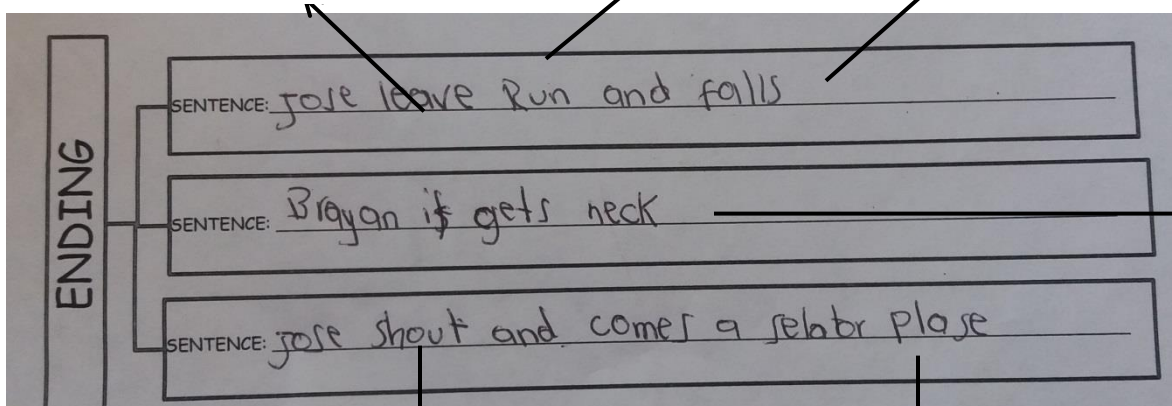 ENDING
SENTENCE: Jose leave Run and falls
SENTENCE: Brayan is gets neck
SENTENCE: Jose shout and comes a selator plase